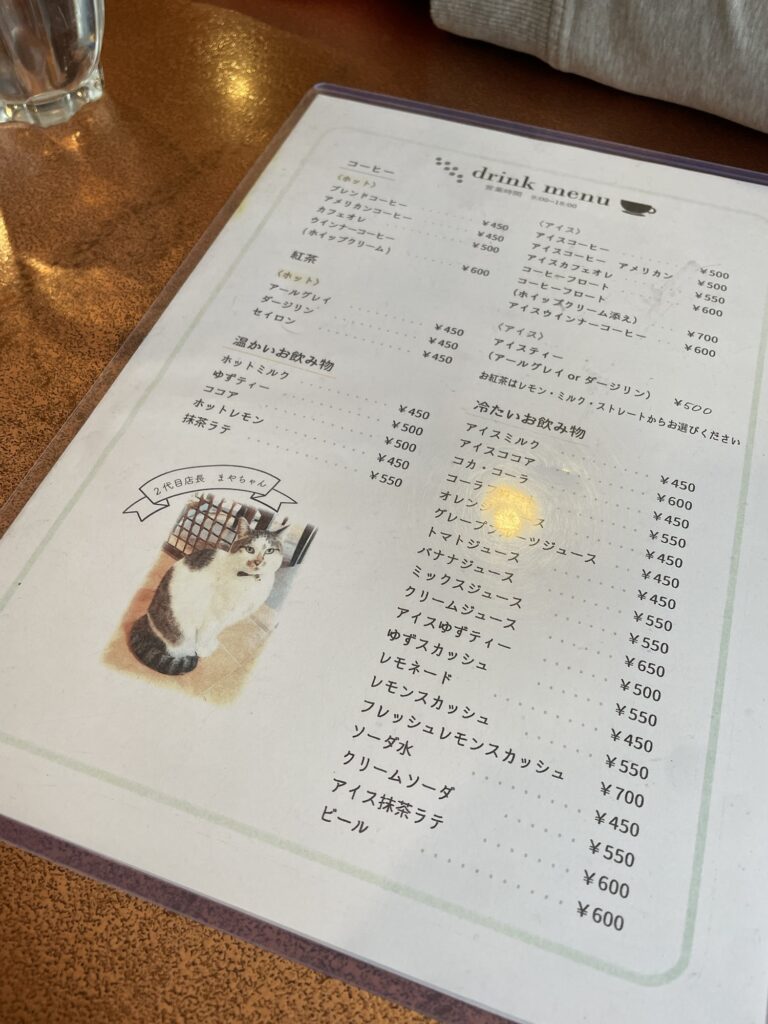 drink menu
営業時間 9:00~18:00
コーヒー
(ホット)
ブレンドコーヒー ¥450
アメリカンコーヒー ¥450
カフェオレ ¥500
ウインナーコーヒー
(ホイップクリーム) ¥600
紅茶
(ホット)
アールグレイ ¥450
ダージリン ¥450
セイロン ¥450
温かいお飲み物
ホットミルク ¥450
ゆずティー ¥500
ココア ¥500
ホットレモン ¥450
抹茶ラテ ¥550
2代目店長 まやちゃん
(アイス)
アイスコーヒー ¥500
アイスコーヒー アメリカン ¥500
アイスカフェオレ ¥550
コーヒーフロート ¥600
コーヒーフロート
(ホイップクリーム添え) ¥700
アイスウインナーコーヒー ¥600
(アイス)
アイスティー
(アールグレイ or ダージリン) ¥500
お紅茶はレモン・ミルク・ストレートからお選びください
冷たいお飲み物
アイスミルク ¥450
アイスココア ¥600
コカ・コーラ ¥450
¥550
¥450
グレープフルーツジュース ¥450
トマトジュース ¥450
バナナジュース ¥550
ミックスジュース ¥550
クリームジュース ¥650
アイスゆずティー ¥500
ゆずスカッシュ ¥550
レモネード ¥450
レモンスカッシュ ¥550
フレッシュレモンスカッシュ ¥700
ソーダ水 ¥450
クリームソーダ ¥550
アイス抹茶ラテ ¥600
ビール ¥600